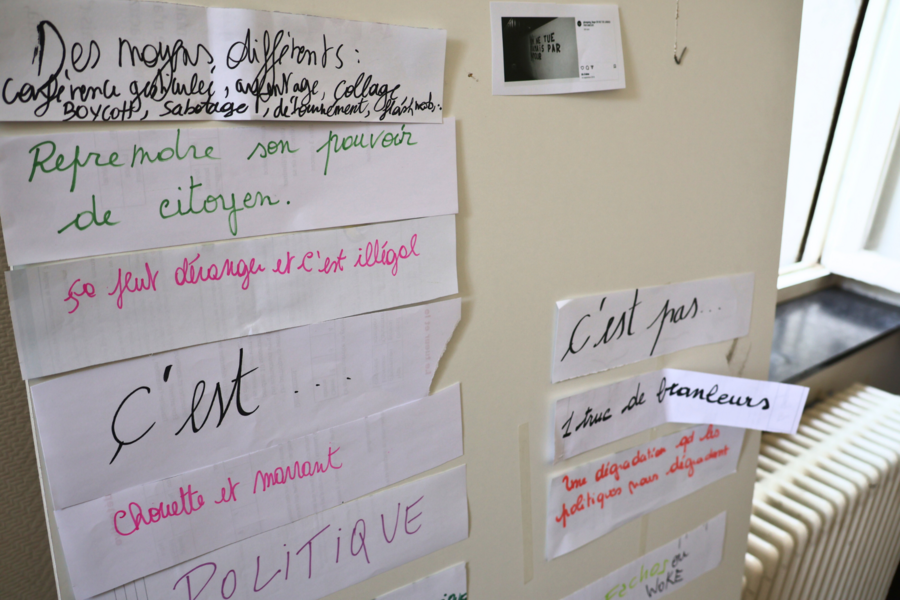 Des moyens différents :
conférence gesticulée, arpentage, collage
BOYCOTT, sabotage, détournement, flashmobs..
Reprendre son pouvoir
de citoyen.
ça peut déranger et c'est illégal
C'est ...
chouette et marrant
POLITIQUE
TUE
PAR
C'est pas...
1 truc de branleurs
Une dégradation
politiques nous dégradent
Fachos ou
WOKE